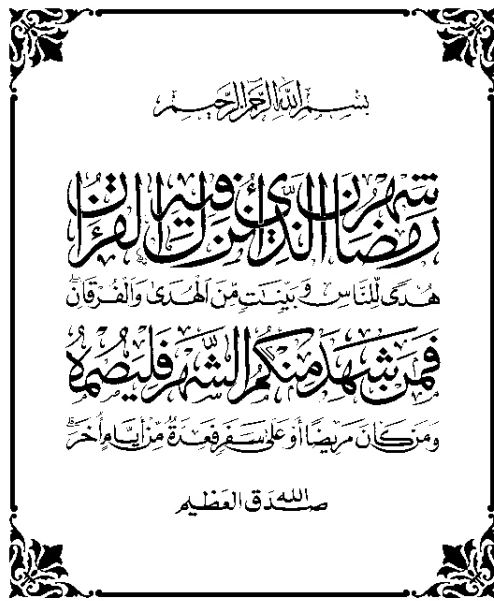 بِسْمِ اللَّهِ الرَّحْمَنِ الرَّحِيمِ
شَهْرُ رَمَضَانَ الَّذِي أُنْزِلَ فِيهِ الْقُرْآنُ
هُدًى لِلنَّاسِ وَبَيِّنَاتٍ مِنَ الْهُدَى وَالْفُرْقَانِ
فَمَنْ شَهِدَ مِنْكُمُ الشَّهْرَ فَلْيَصُمْهُ
وَمَنْ كَانَ مَرِيضًا أَوْ عَلَى سَفَرٍ فَعِدَّةٌ مِنْ أَيَّامٍ أُخَرَ
صَدَقَ اللَّهُ الْعَظِيمُ